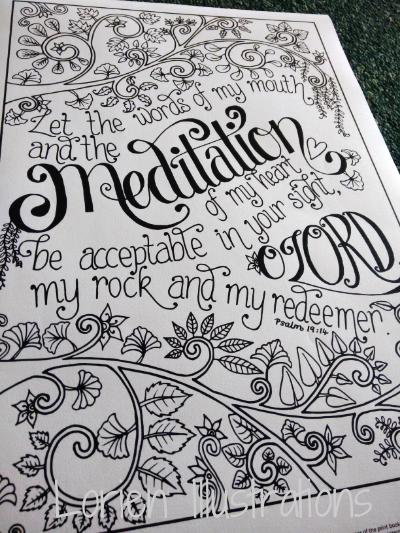 Let the words of my mouth
and the
Meditation
of my heart
be acceptable in your sight,
O LORD
my rock and my redeemer.
Psalm 19:14
Lorien Illustrations
of the print book